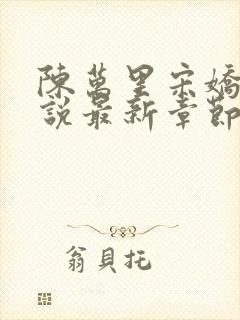 陳萬里宋嬌
說最新章節
翁貝托